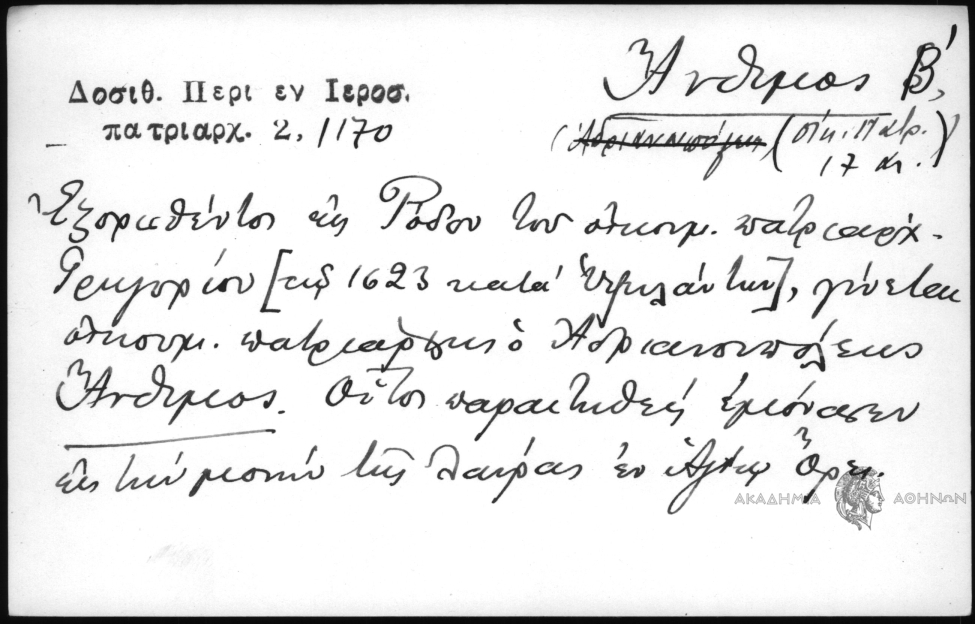 Δοσιθ. Περι εν Ιεροσ.
πατριαρχ. 2, 1170
Ἄνθιμος Β΄,
(Ἀδριανουπόλεως) (Οἰκ. Πατρ.
17 αι.)
Ἐξορισθέντος εἰς Ρόδον τοῦ οἰκουμ. πατριαρχ.
Γρηγορίου [τῷ 1623 κατὰ Ὑψηλάντην], γίνεται
οἰκουμ. πατριάρχης ὁ Ἀδριανουπόλεως
Ἄνθιμος. Οὗτος παραιτηθείς ἐμόνασεν
εἰς τὴν μονήν τῆς Λαύρας ἐν Ἁγίῳ Ὄρει.
ΑΚΑΔΗΜΙΑ ΑΘΗΝΩΝ